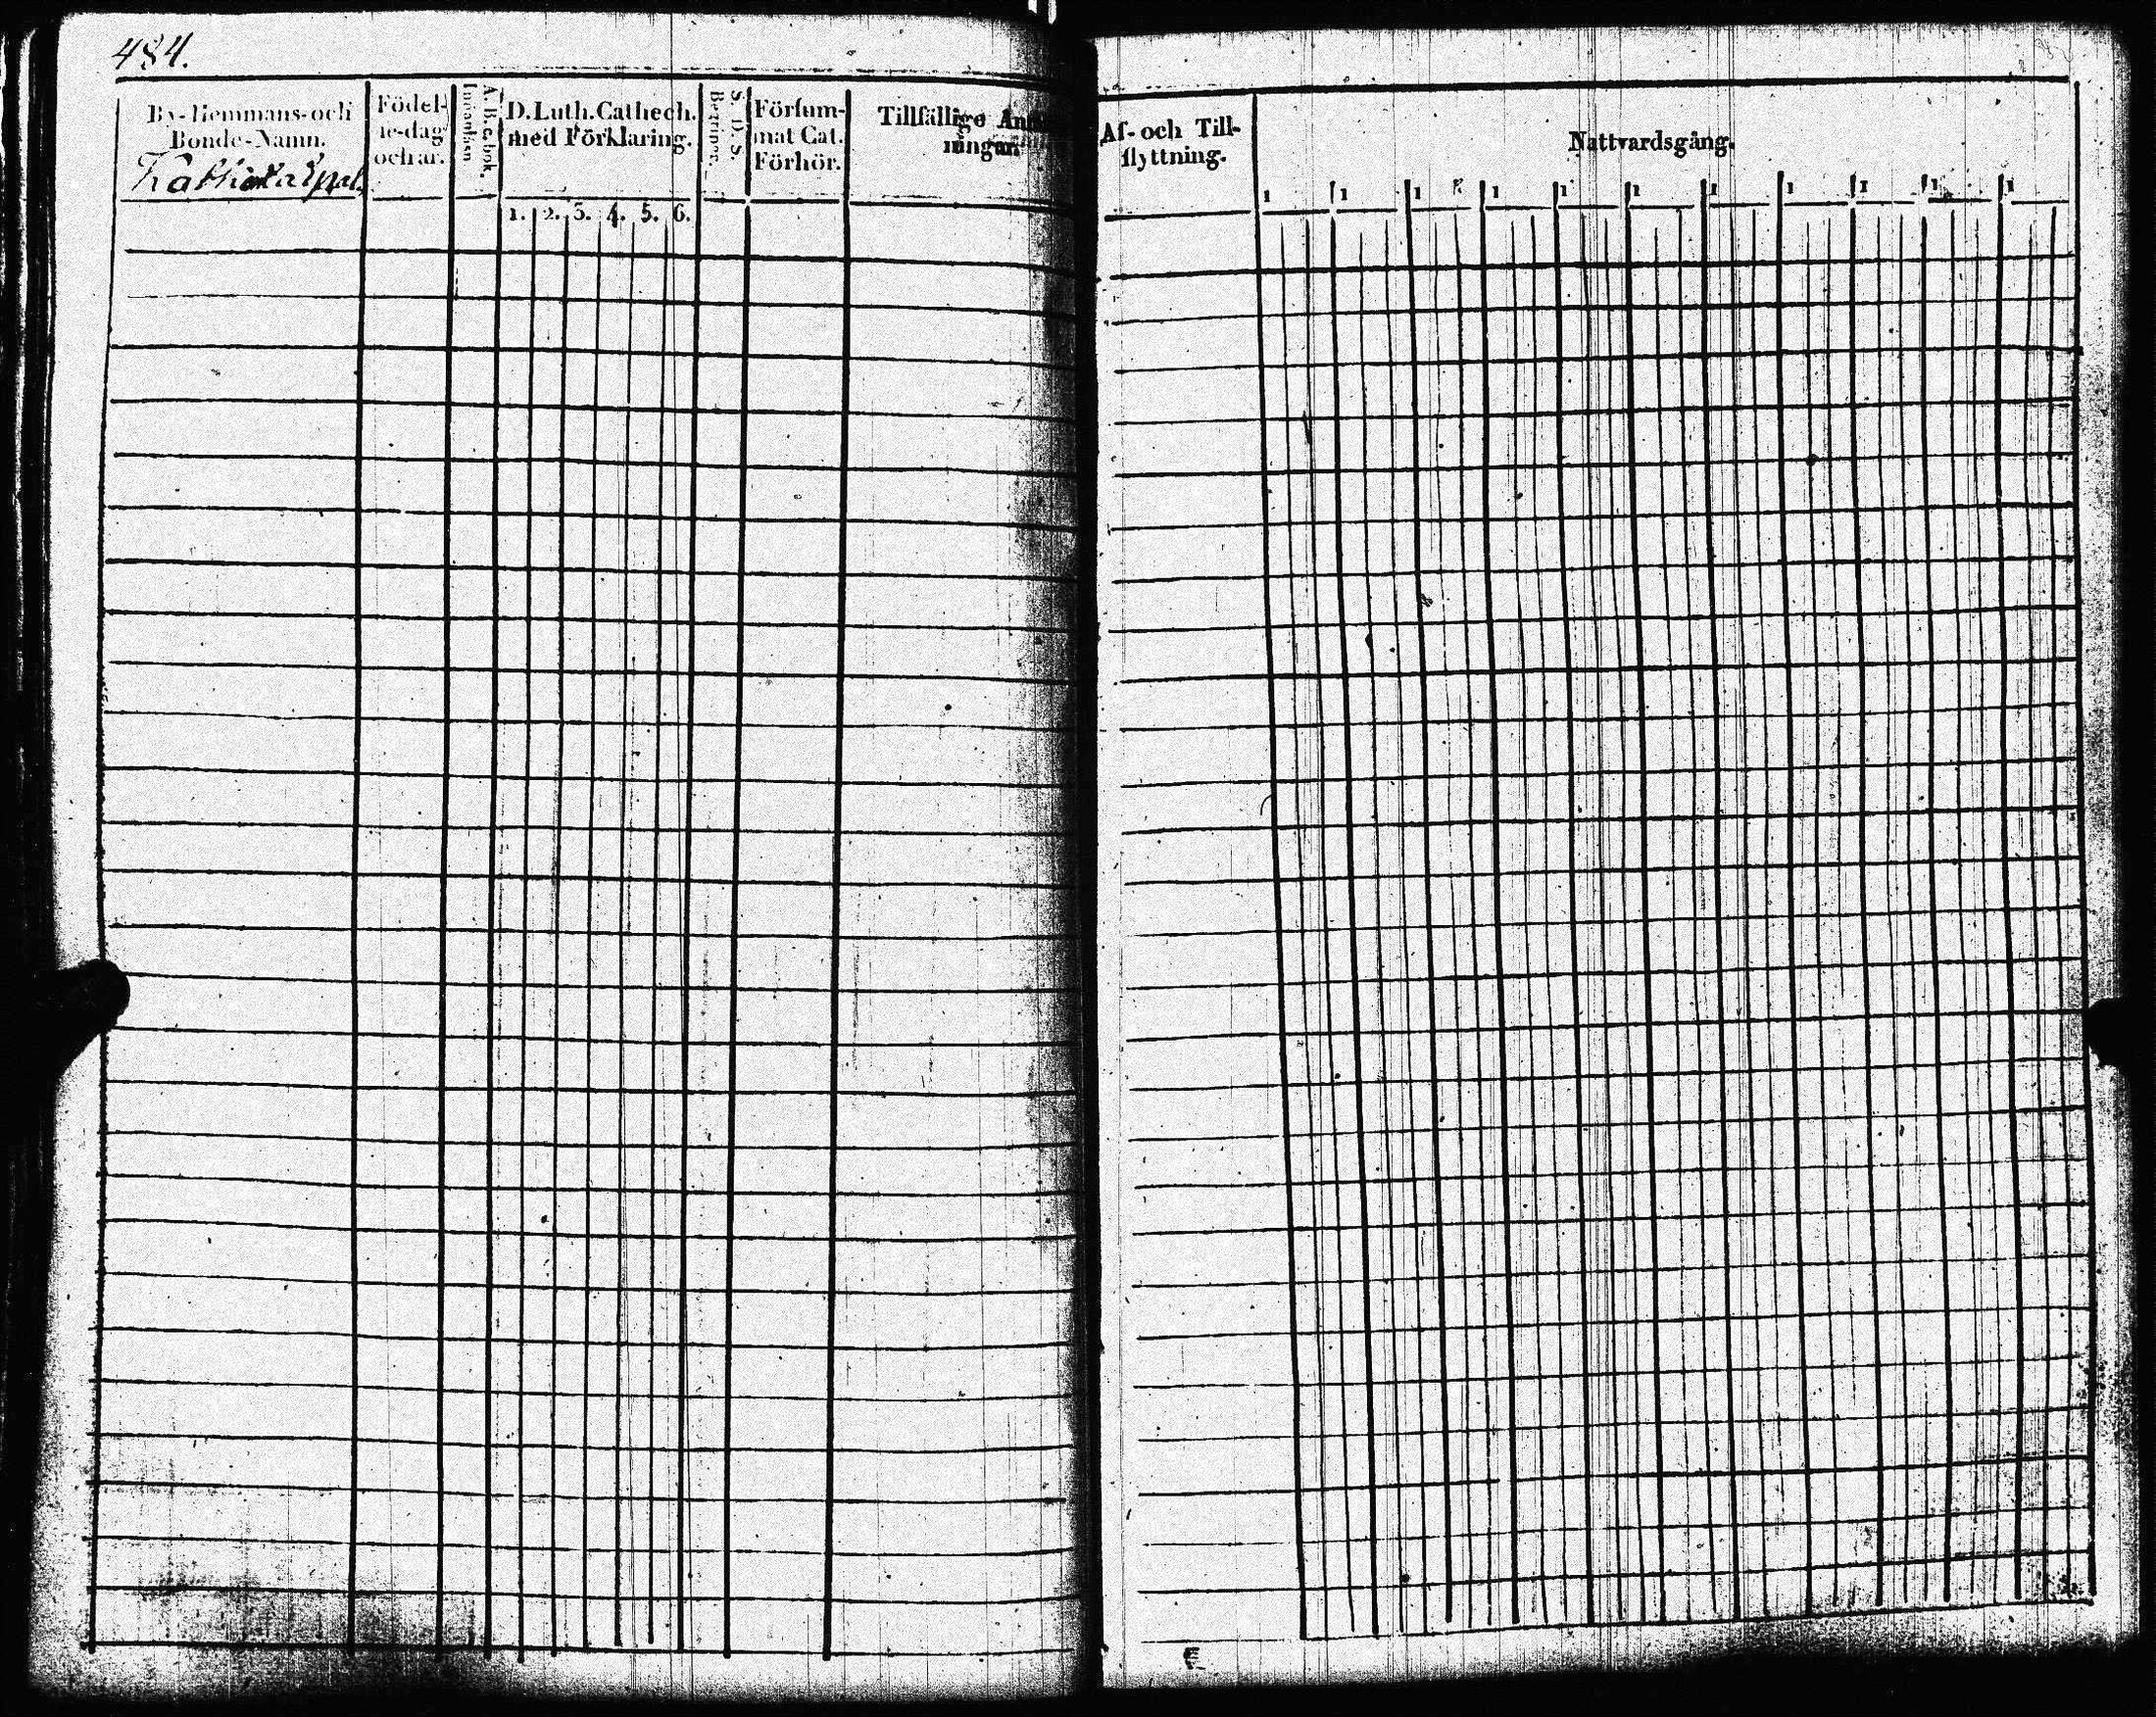 484.
By-Hemmans-och
Bonde-Namn.
Födel-
se-dag
och år.
Innanläsn
A.B.C.bok.
D. Luth. Cathech.
med Förklaring.
1. 2. 3. 4. 5. 6.
S. D. S.
Begripor.
Försum-
mat Cat.
Förhör.
Tillfällige
ningar
Af- och Till-
flyttning.
Nattvardsgång.
1 1 1 1 1 1 1 1 1 1 1